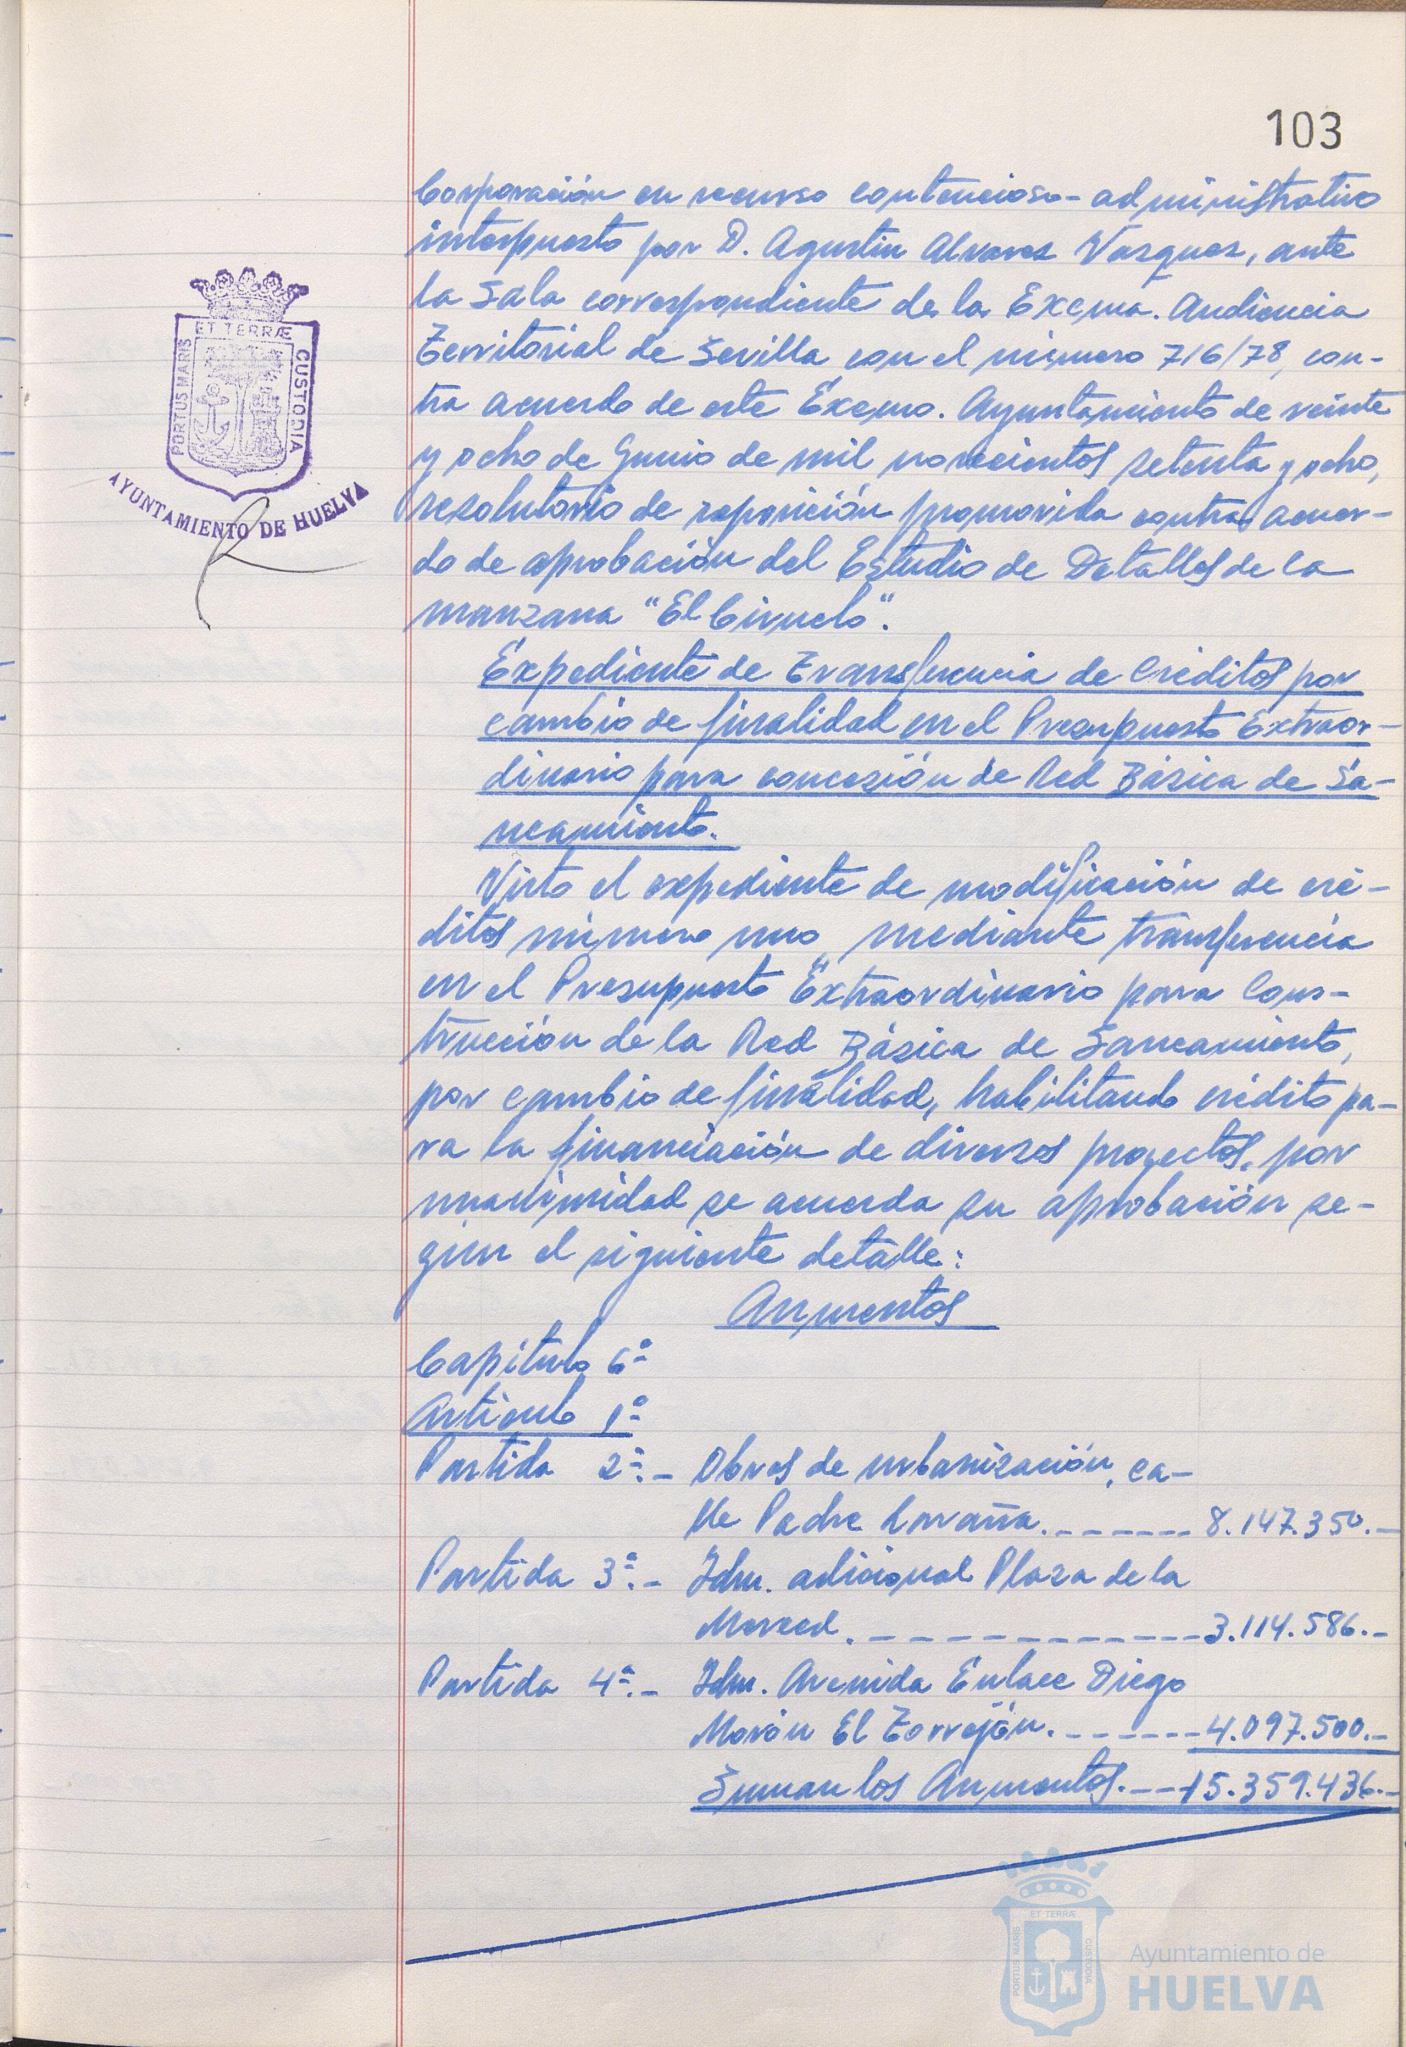 103
Corporación en recurso contencioso-administrativo
interpuesto por D. Agustin Alvarez Vazquez, ante
la Sala correspondiente de la Excma. Audiencia
Territorial de Sevilla con el número 716/78, con-
tra acuerdo de este Excmo. Ayuntamiento de veinte
y ocho de Junio de mil novecientos setenta y ocho,
resolutorio de reposición promovida contra acuer-
do de aprobación del Estudio de Detalles de la
manzana "El Ciruelo".
Expediente de Transferencia de Créditos por
cambio de finalidad en el Presupuesto Extraor-
dinario para concesión de Red Básica de Sa-
neamiento.
Visto el expediente de modificación de cré-
ditos número uno mediante transferencia
en el Presupuesto Extraordinario para Cons-
trucción de la Red Básica de Saneamiento,
por cambio de finalidad, habilitando crédito pa-
ra la financiación de diversos proyectos, por
unanimidad se acuerda su aprobación se-
gún el siguiente detalle:
Aumentos
Capítulo 6º
Artículo 1º
Partida 2ª.- Obras de urbanización, ca-
lle Padre Laraña. 8.147.350.-
Partida 3ª.- Idm. adicional Plaza de la
Merced. 3.114.586.-
Partida 4ª.- Idm. Avenida Enlace Diego
Morón El Torrejón. 4.097.500.-
Suman los Aumentos. 15.359.436.-
PORTUS MARIS
ET TERRÆ
CUSTODIA
AYUNTAMIENTO DE HUELVA
PORTUS MARIS
ET TERRÆ
CUSTODIA
Ayuntamiento de
HUELVA